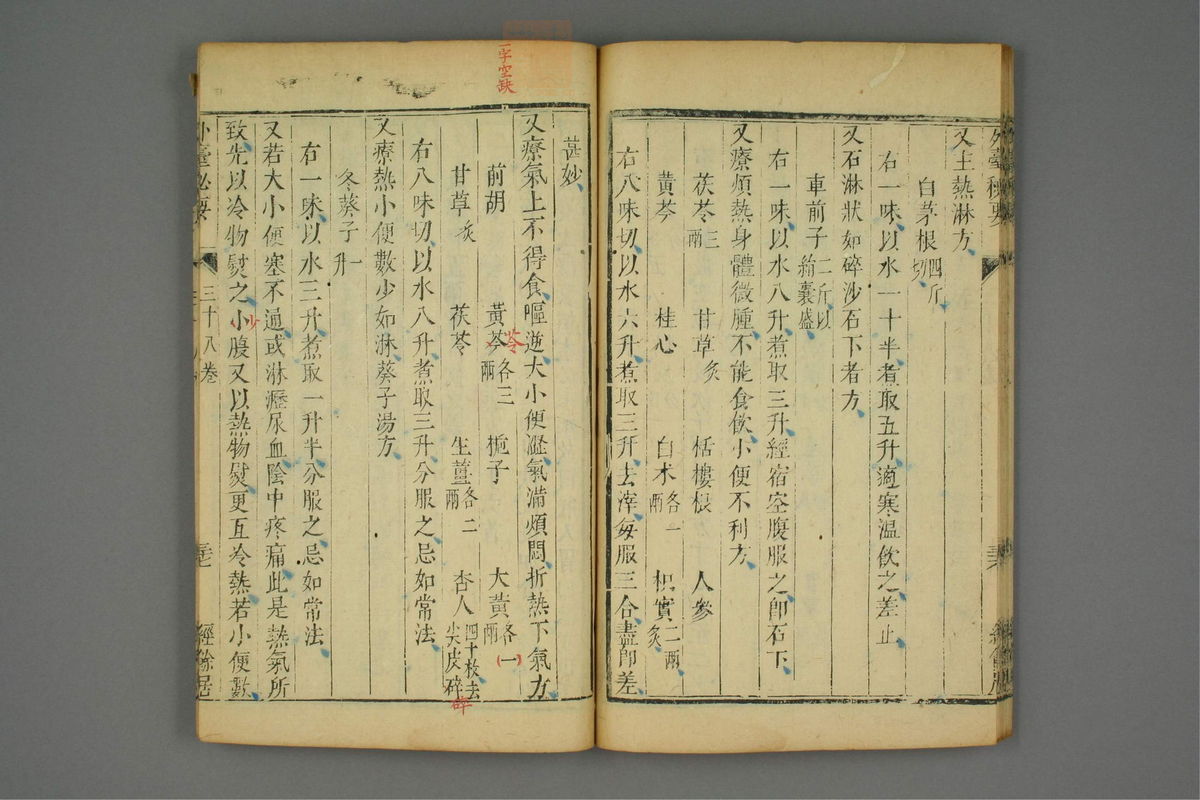 外臺秘要
又主熱淋方
白茅根四斤切
右一味以水一十半煮取五升適寒溫飲之差止
又石淋狀如碎沙石下者方
車前子二斤以絹囊盛
右一味以水八升煮取三升經宿空腹服之即石下
又療煩熱身體微腫不能食飲小便不利方
茯苓三兩 甘草炙 栝樓根 人參
黃芩 桂心 白朮各一兩 枳實二兩炙
右八味切以水六升煮取三升去滓每服三合盡即差
甚妙
又療氣上不得食嘔逆大小便澁氣滿煩悶折熱下氣方
前胡 黃芩各三兩 梔子 大黃各一兩
甘草炙 茯苓 生薑各二兩 杏人四十枚去尖皮碎
右八味切以水八升煮取三升分服之忌如常法
又療熱小便數少如淋葵子湯方
冬葵子一升
右一味以水三升煮取一升半分服之忌如常法
又若大小便塞不通或淋瀝尿血陰中疼痛此是熱氣所
致先以冷物熨之小腹又以熱物熨更互冷熱若小便數
外臺秘要 三十八卷 經餘居
一字空缺
苓
少
碎